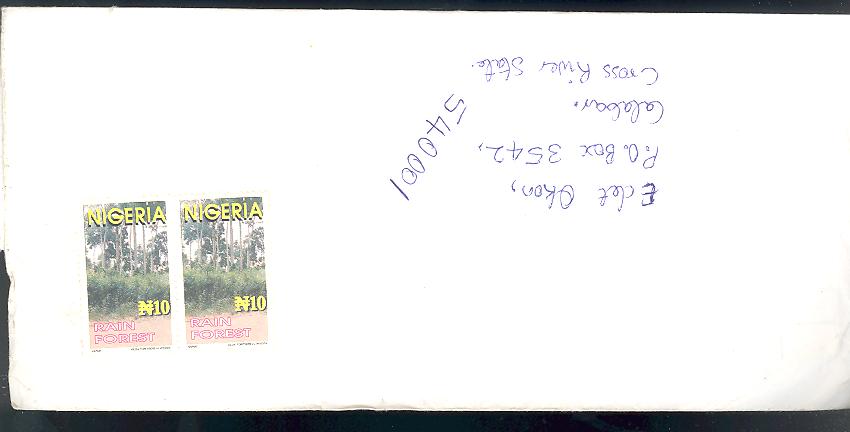 Edet Okon,
P.O. Box 3542,
Calabar.
Cross River State.
540001
NIGERIA
₦10
RAIN
FOREST
NIGERIA
₦10
RAIN
FOREST